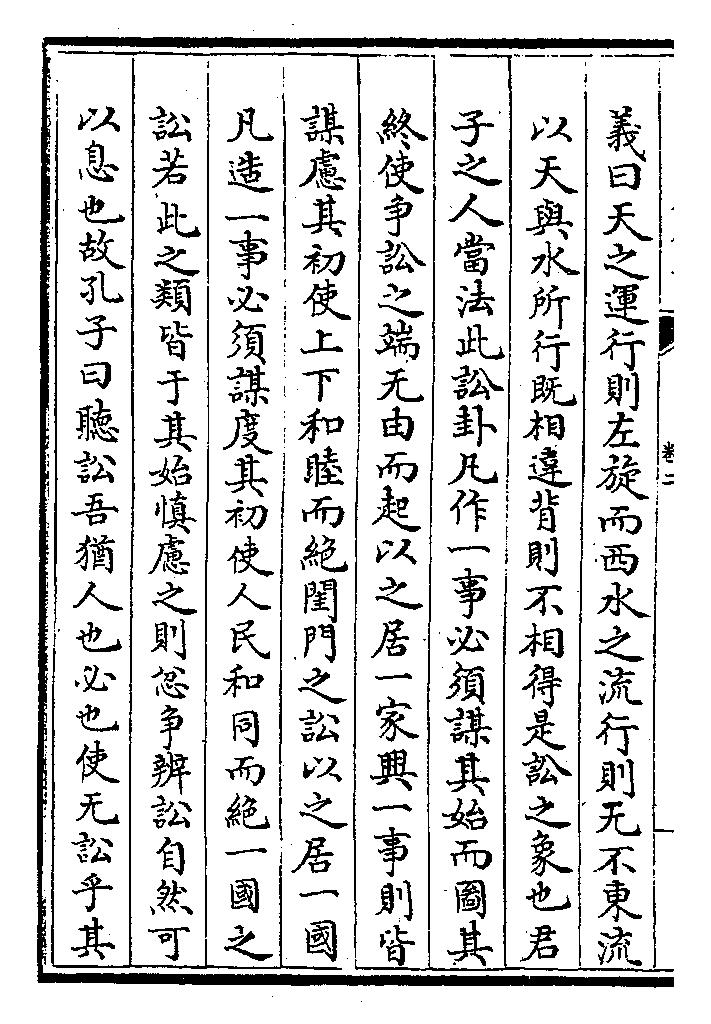 義曰天之運行則左旋而西水之流行則无不東流
以天與水所行既相違背則不相得是訟之象也君
子之人當法此訟卦凡作一事必須謀其始而圖其
終使争訟之端无由而起以之居一家興一事則皆
謀慮其初使上下和睦而絶閨門之訟以之居一國
凡造一事必須謀度其初使人民和同而絶一國之
訟若此之類皆于其始慎慮之則忿争辨訟自然可
以息也故孔子曰聽訟吾猶人也必也使无訟乎其
卷二